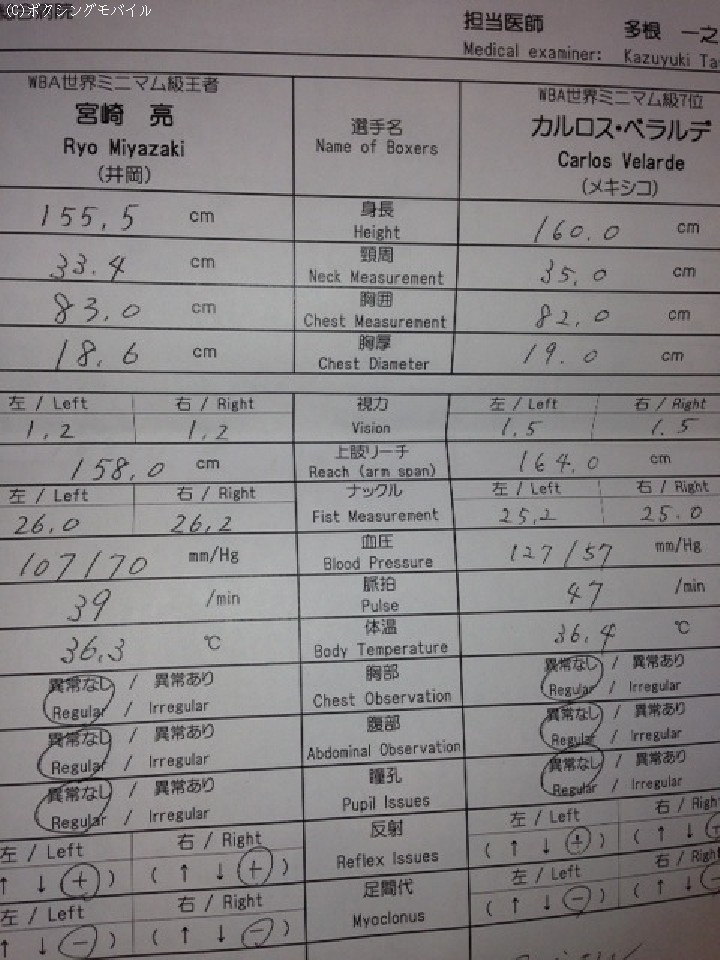 (C)ボクシングモバイル
担当医師 多根 一之
Medical examiner: Kazuyuki Ta
WBA世界ミニマム級王者 WBA世界ミニマム級7位
宮崎 亮 選手名 カルロス・ベラルデ
Ryo Miyazaki Name of Boxers Carlos Velarde
(井岡) (メキシコ)
155.5 cm 身長 Height 160.0 cm
33.4 cm 頸周 Neck Measurement 35.0 cm
83.0 cm 胸囲 Chest Measurement 82.0 cm
18.6 cm 胸厚 Chest Diameter 19.0 cm
左 / Left 右 / Right 視力 左 / Left 右 / Right
1.2 1.2 Vision 1.5 1.5
158.0 cm 上肢リーチ Reach (arm span) 164.0 cm
左 / Left 右 / Right ナックル 左 / Left 右 / Right
26.0 26.2 Fist Measurement 25.2 25.0
107/70 mm/Hg 血圧 Blood Pressure 127/57 mm/Hg
39 /min 脈拍 Pulse 47 /min
36.3 ℃ 体温 Body Temperature 36.4 ℃
異常なし / 異常あり 胸部 異常なし / 異常あり
Regular / Irregular Chest Observation Regular / Irregular
異常なし / 異常あり 腹部 異常なし / 異常あり
Regular / Irregular Abdominal Observation Regular / Irregular
異常なし / 異常あり 瞳孔 異常なし / 異常あり
Regular / Irregular Pupil Issues Regular / Irregular
左 / Left 右 / Right 反射 左 / Left 右 / Right
↑ ↓ + ) ( ↑ ↓ + ) Reflex Issues ( ↑ ↓ + ) ( ↑ ↓ +
左 / Left 右 / Right 足間代 左 / Left 右 / Right
↑ ↓ - ) ( ↑ ↓ - ) Myoclonus ( ↑ ↓ - ) ( ↑ ↓ -